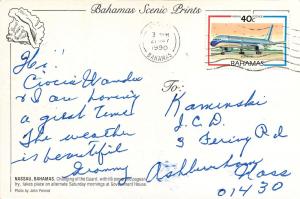 Bahamas Scenic Prints
3 PM
1990
BAHAMAS
40c
BAHAMAS
Hi!
Ciocia Wanda
& I am having
a great time
The weather
is beautiful
Granny
To:
Kaminski
J.C.D.
3 Rd
Ashburnham
Mass
01430
NASSAU, BAHAMAS. Changing of the Guard, with its pomp and pageantry,
takes place on alternate Saturday mornings at Government House.
Photo by John Penrod